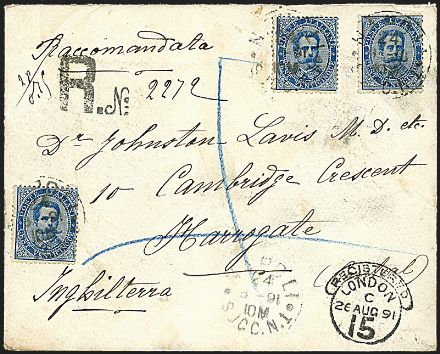 Raccomandata
R. N.
2272
Dr Johnston Lavis M.D. etc.
10 Cambridge Crescent
Harrogate
Inghilterra
REGISTERED
LONDON
C
26 AUG 91
15
91
10M
SUCC. N.